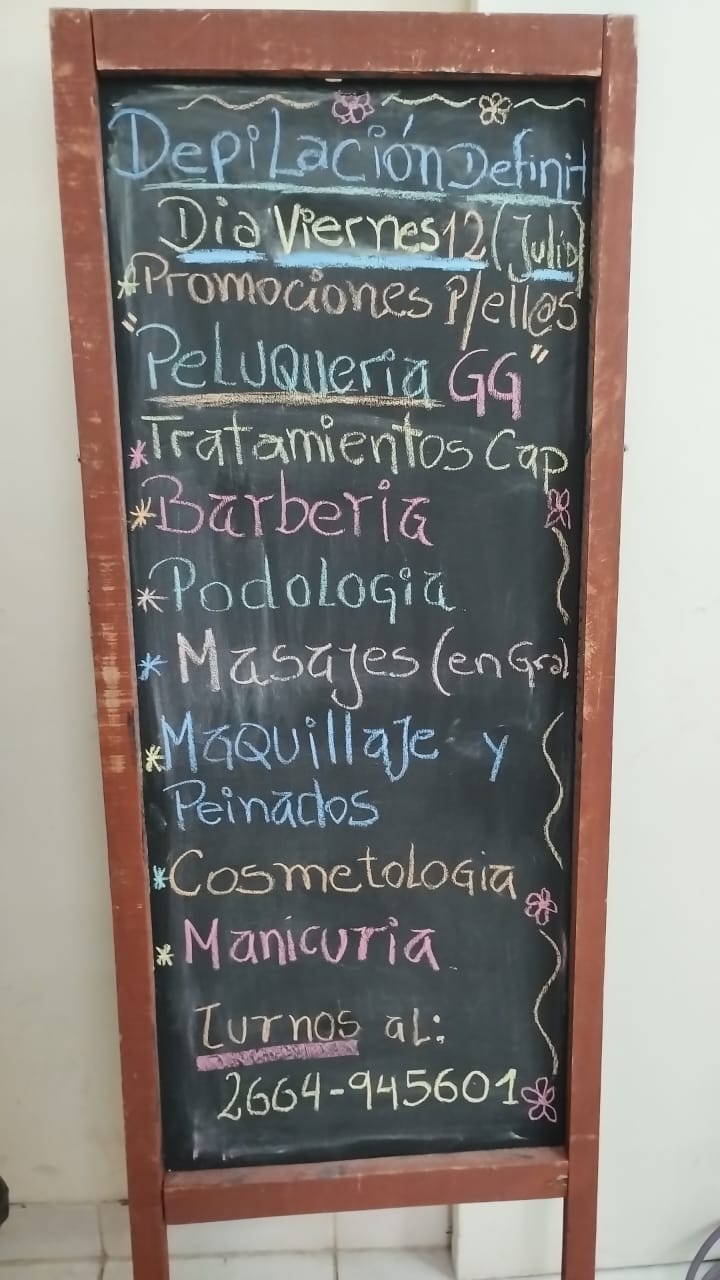 Depilación Definit
Dia Viernes 12 (Julio)
*Promociones P/ell@s
"Peluqueria GG"
*Tratamientos Cap
*Barberia
*Podologia
*Masajes (en Gral
*Maquillaje y
Peinados
*Cosmetologia
*Manicuria
Turnos al:
2664-945601